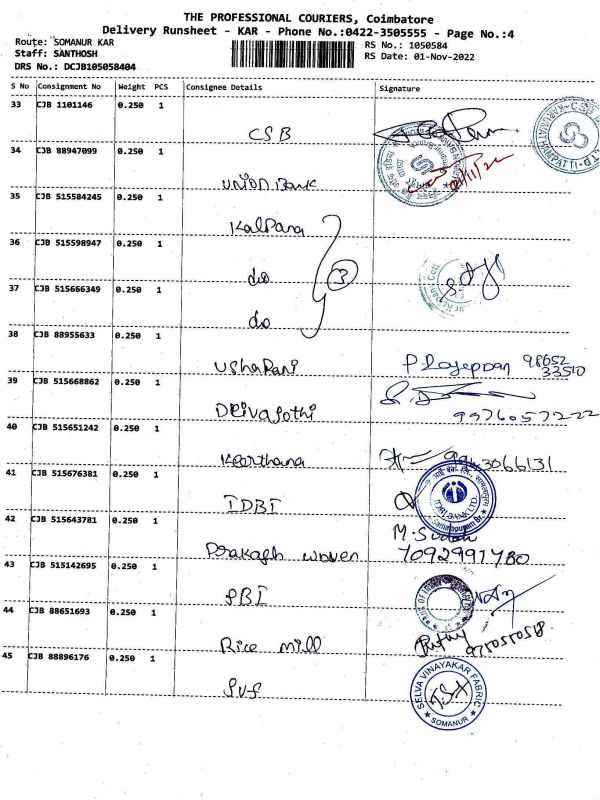 THE PROFESSIONAL COURIERS, Coimbatore
Delivery Runsheet - KAR - Phone No.:0422-3505555 - Page No.:4
Route: SOMANUR KAR
RS No.: 1050584
Staff: SANTHOSH
RS Date: 01-Nov-2022
DRS No.: DCJB105058404
S No Consignment No Weight PCS Consignee Details Signature
33 CJB 1101146 0.250 1
CSB
34 CJB 88947099 0.250 1
UNION Bank
35 CJB 515584245 0.250 1
Kalpana
36 CJB 515598947 0.250 1
do 3
37 CJB 515666349 0.250 1
do
38 CJB 88955633 0.250 1
UshaRani P. Rajeppan 98652
33510
39 CJB 515668862 0.250 1
9976057222
40 CJB 515651242 0.250 1
Keerthana 9963066131
41 CJB 515676381 0.250 1
IDBI
IDBI BANK LTD.
42 CJB 515643781 0.250 1
Prakash woven 7092991780
43 CJB 515142695 0.250 1
SBI
44 CJB 88651693 0.250 1
Rice mill 9750550518
45 CJB 88896176 0.250 1
SVF
SELVA VINAYAKAR FABRIC
SOMANUR